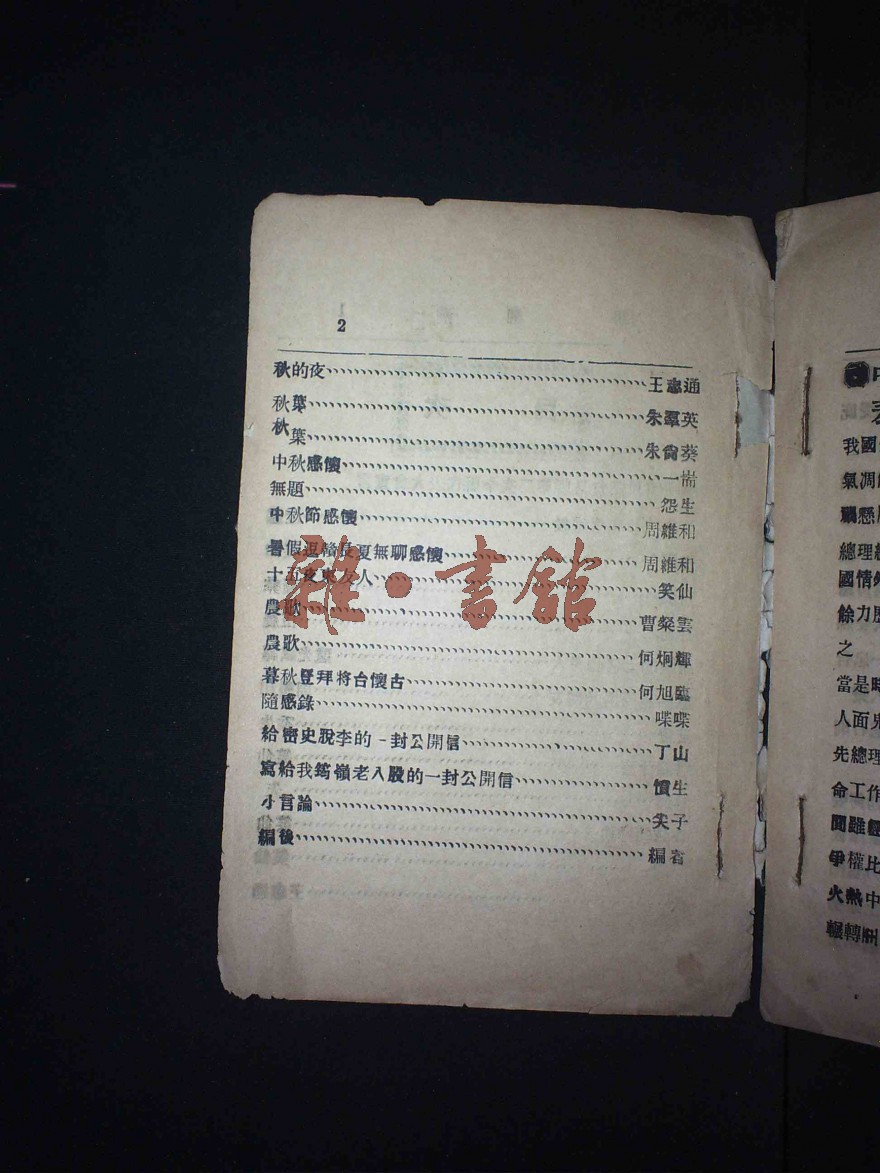 2
秋的夜 王志通
秋葉 朱羣英
秋葉 朱尙葵
中秋感懷 一耑
無題 怨生
中秋節感懷 周維和
暑假返贛長夏無聊感懷 周維和
十五夜 友人 笑仙
農歌 曹燊雲
農歌 何炯輝
暮秋登拜將台懷古 何旭臨
隨感錄 喋喋
給密史脫李的一封公開信 丁山
寫給我筠嶺老入股的一封公開信 憤生
小言論 尖子
編後 編者
雜·書館
我國
氣凋
懸
總理
國情
餘力
之
當是時
人面
先總理
命工作
聞雖
爭權比
火熱中
輾轉